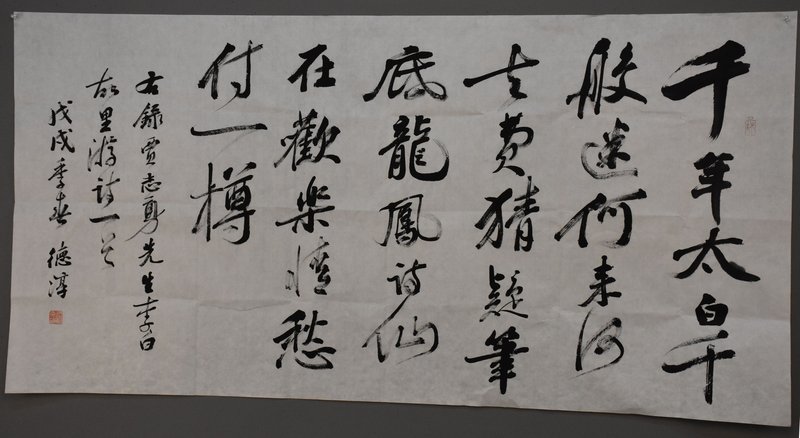 千年太白千
般迷何来何
去费猜疑笔
底龍鳳诗仙
在歡樂情愁
付一樽
右錄贾志勇先生李白
故里游诗一首
戊戌季春 德淳